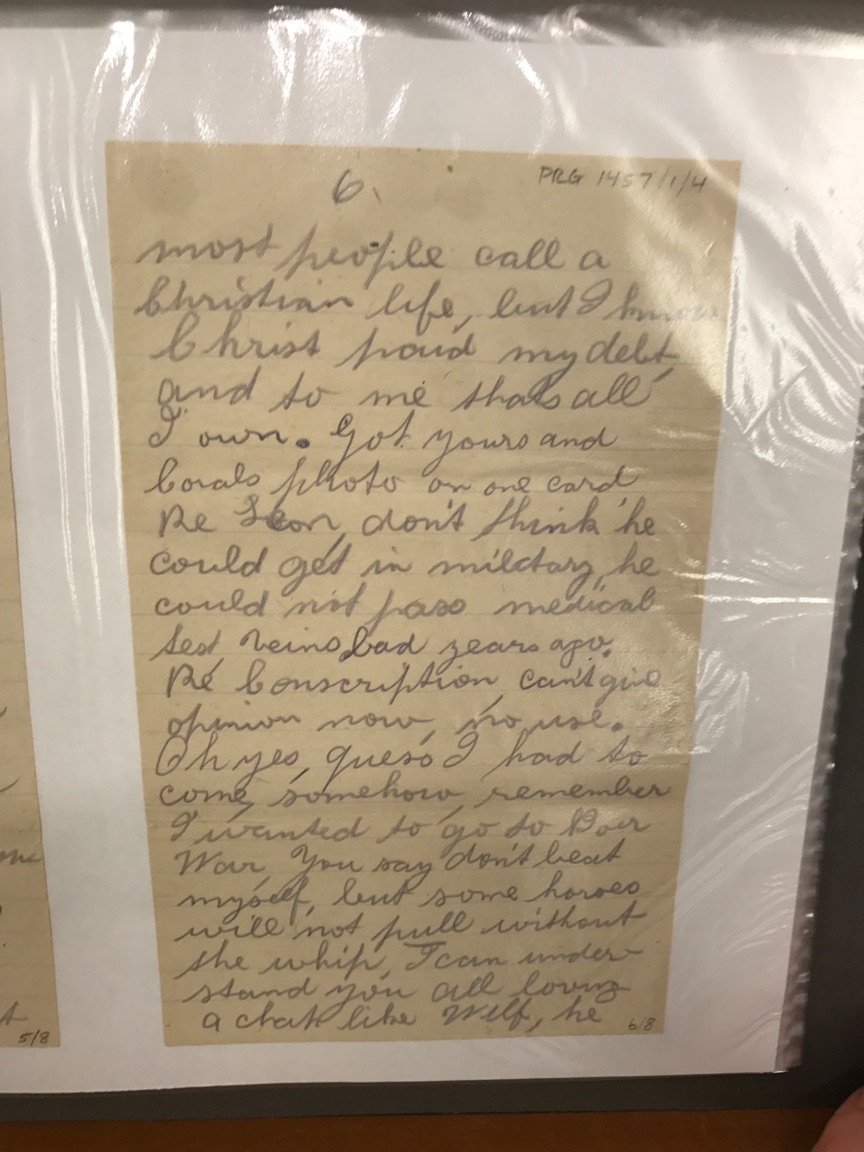 6.
PRG 1457/1/4
most people call a
Christian life, but I know
Christ paid my debt,
and to me thats all
I own. Got yours and
Corals photo on one card
Re Leon, don't think he
could get in military, he
could not pass medical
test, veins bad years ago.
Re Conscription, can't give
opinion now, no use.
Oh yes, guess I had to
come, somehow, remember
I wanted to go to Boer
War, You say don't beat
myself, but some horses
will not pull without
the whip, I can under-
stand you all loving
a chat like Wilf, he
6/8
5/8